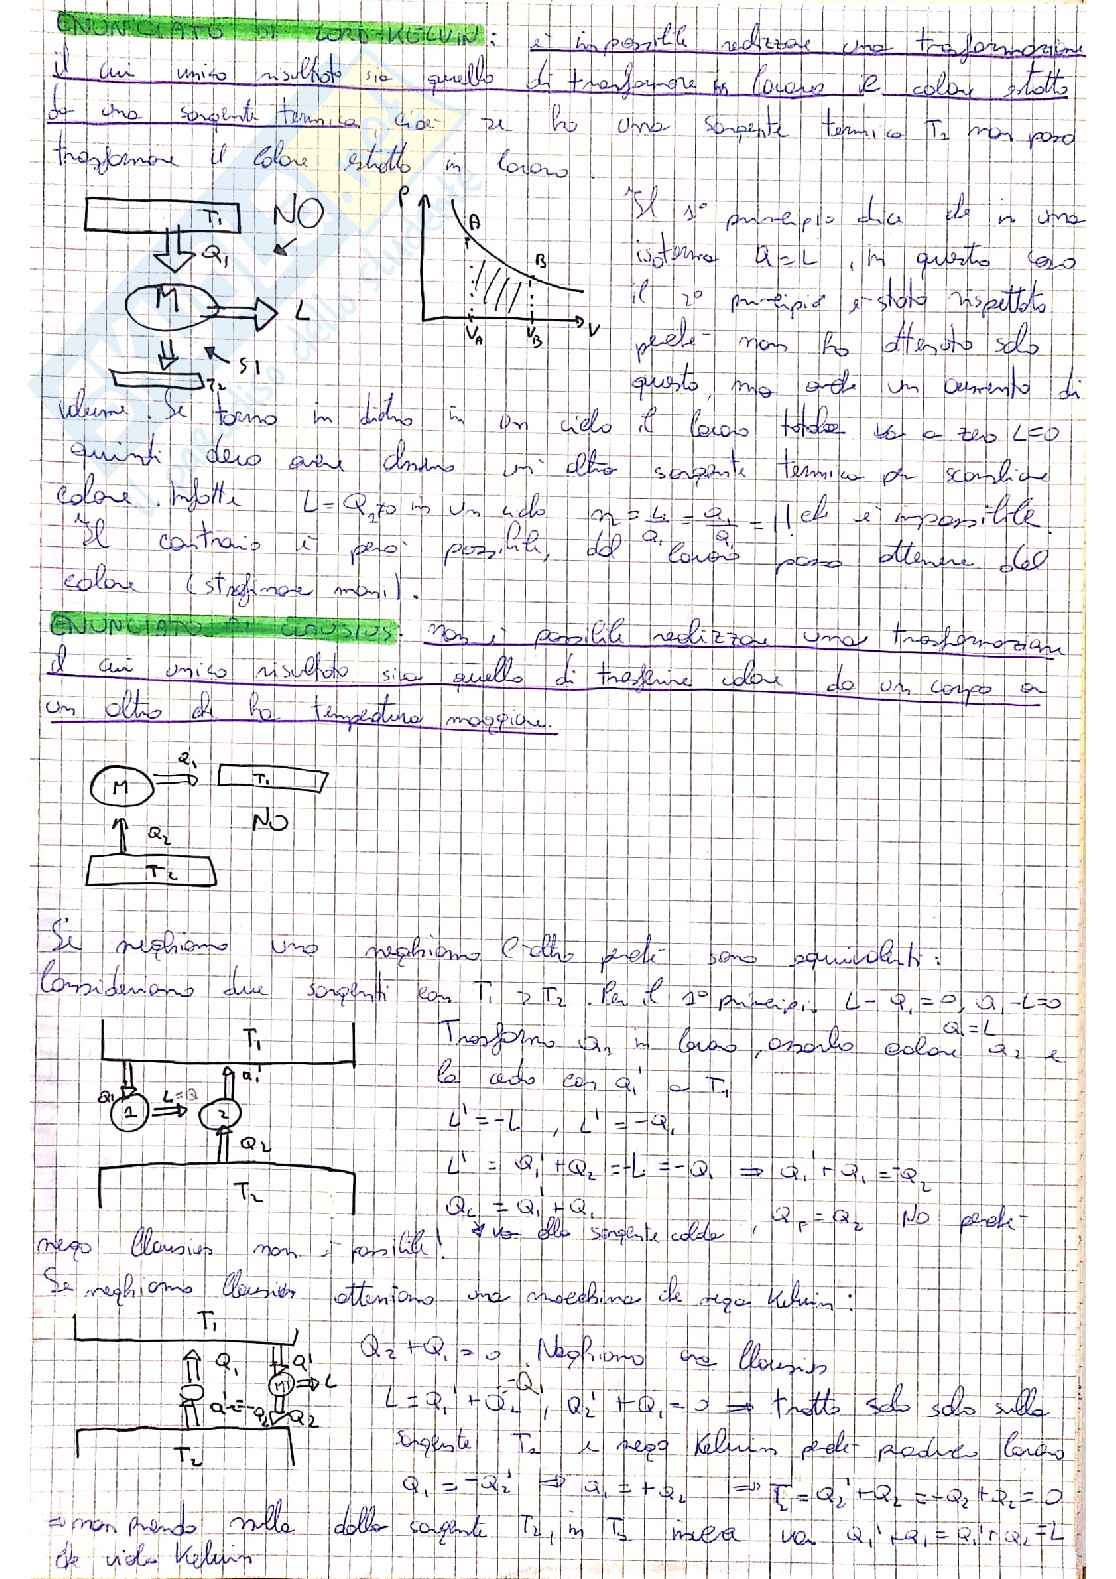 ENUNCIATO DI LORD-KELVIN: è impossibile realizzare una trasformazione
il cui unico risultato sia quello di trasformare in lavoro il calore estratto
da una sorgente termica cioè se ho una sorgente termica T2 non posso
trasformare il calore estratto in lavoro.
T1 NO
Q1
M L
SI
T2
P A B VA VB V
Il 1° principio dice che in una
isoterma Q=L, in questo caso
il 2° principio è stato rispettato
perché non ho ottenuto solo
questo, ma anche un aumento di
volume. Se torno in dietro in un ciclo il lavoro totale va a zero L=0
quindi devo avere almeno un'altra sorgente termica per scambiare
calore. Infatti L=Q1≠0 in un ciclo n = L/Q1 = Q1/Q1 = 1! che è impossibile.
Il contrario è però possibile, dal lavoro posso ottenere del
calore (strofinare mani).
ENUNCIATO DI CLAUSIUS: non è possibile realizzare una trasformazione
il cui unico risultato sia quello di trasferire calore da un corpo a
un altro che ha temperatura maggiore.
Q1
M T1
NO
Q2
T2
Se neghiamo uno neghiamo l'altro perché sono equivalenti:
Consideriamo due sorgenti con T1 > T2. Per il 1° principio L-Q1=0, Q1-L=0
Q1=L
T1
Q1 1 L=Q 2 Q1'
Q2
T2
Trasformo Q1 in lavoro, assorbo calore Q2 e
lo cedo con Q1' a T1
L'=-L, L'=-Q1
L' = Q1'+Q2 = -L = -Q1 ⇒ Q1'+Q1 = -Q2
Qc = Q1'+Q1, QF = Q2 NO perché
va alla sorgente calda
nego Clausius non è possibile!
Se neghiamo Clausius otteniamo una macchina che nega Kelvin:
T1
Q1 Q1'
M L
Q2'=-Q2 Q2
T2
Q2+Q1=0. Neghiamo Clausius
-Q1
L=Q1'+Q2, Q2'+Q1=0 ⇒ tratto solo solo sulla
sorgente T2 e nego Kelvin perché produco lavoro
Q1=-Q2' ⇒ Q1=+Q2 ⇒ T2=Q2'+Q2=-Q2+Q2=0
⇒ non prendo nulla dalla sorgente T2, in T1 invece va Q1'+Q1=Q1'+Q2=L
che viola Kelvin